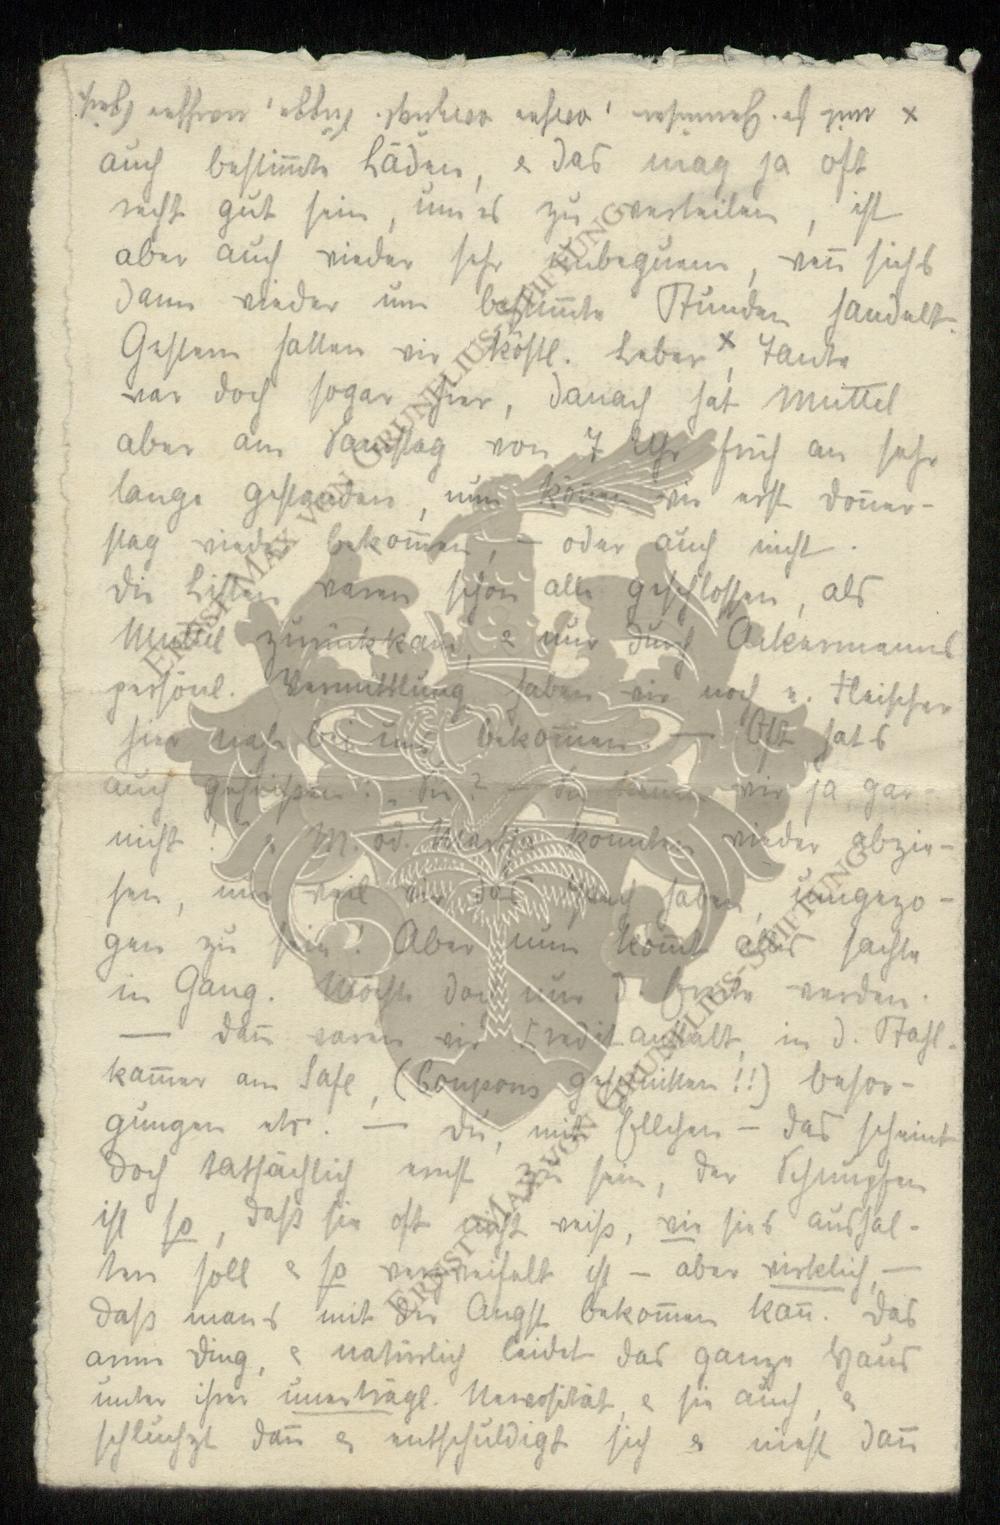 auch bestim̅te Läden, & das mag ja oft
recht gut sein, um es zu verteilen, ist
aber auch wieder sehr unbequem, wen̅ sichs
dann wieder um bestim̅te Stunden handelt.
Gestern hatten wir köstl. Leber x, Tante
war doch sogar hier, danach hat Muttel
aber am Samstag von 7 Uhr früh an sehr
lange gestanden, nun kön̅en wir erst Don̅er-
stag wieder bekom̅en, — oder auch nicht.
Die Listen waren schon alle geschlossen, als
Muttel zurückkam, & nur durch Ackermanns
persönl. Vermittlung haben wir noch e. Fleischer
hier nah bei uns bekom̅en. — Oft hats
auch geheißen: „Sie? — Sie ken̅en wir ja gar-
nicht!" & M. od. Martha konnten wieder abzie-
hen, nur weil wir das Pech haben, umgezo-
gen zu sein! Aber nun kom̅t alles sachte
in Gang. Möcht doch nur d. Ernte werden.
— Dan̅ waren wir Creditanstalt, in d. Stahl-
kam̅er am Safe, (Coupons geschnitten!!) besor-
gungen etc. — Du, mit Ellchen — das scheint
doch tatsächlich ernst zu sein, der Schnupfen
ist so, daß sie oft nicht weiß, wie sies aushal-
ten soll & so verzweifelt ist — aber wirklich, —
daß mans mit der Angst bekom̅en kan̅. Das
arme Ding, & natürlich leidet das ganze Haus
unter ihrer unerträgl. Nervosität, & sie auch, &
schluchzt dan̅ & entschuldigt sich & niest dan̅
ERNST MAX VON GRUNELIUS-STIFTUNG
ERNST MAX VON GRUNELIUS-STIFTUNG